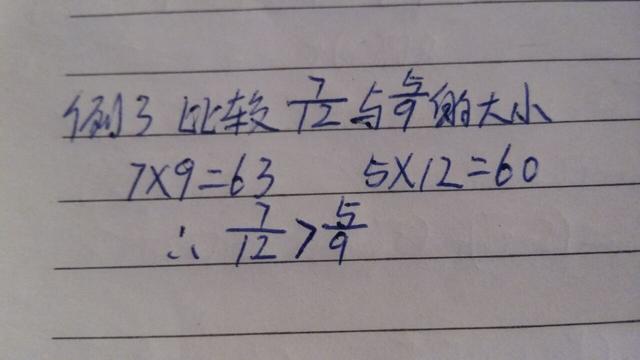 例3 比较 7/12 与 5/9 的大小
7×9=63 5×12=60
∴ 7/12 > 5/9